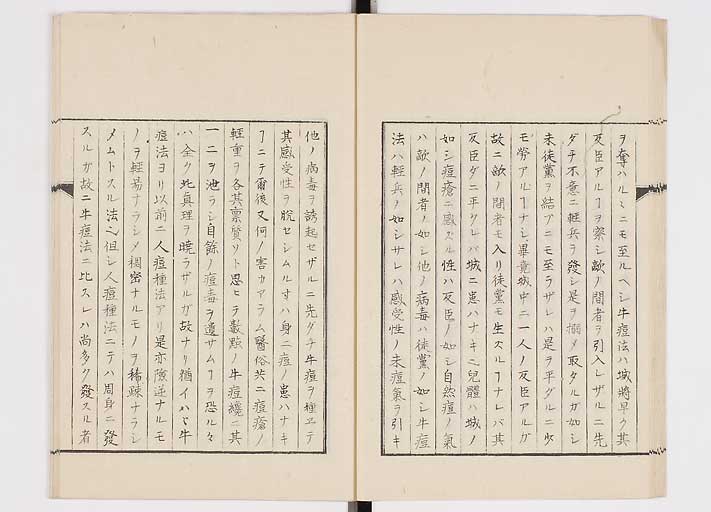 ヲ奪ハルヽニモ至ルヘシ牛痘法ハ城將早ク其
反臣アルヿヲ察シ敵ノ間者ヲ引入レザルニ先
ダチ不意ニ輕兵ヲ發シ是ヲ搦メ取タルガ如シ
未徒黨ヲ結ブニモ至ラザレハ是ヲ平グルニ少
モ勞アルヿナシ畢竟城中ニ一人ノ反臣アルガ
故ニ敵ノ間者モ入リ徒黨モ生スルヿナレバ其
反臣ダニ平クレバ城ニ患ハナキ也兒體ハ城ノ
如シ痘瘡ニ感スル性ハ反臣ノ如シ自然痘ノ氣
ハ敵ノ間者ノ如シ他ノ病毒ハ徒黨ノ如シ牛痘
法ハ輕兵ノ如シサレハ感受性ノ未痘氣ヲ引キ
他ノ病毒ヲ誘起セザルニ先ダチ牛痘ヲ種ヱテ
其感受性ヲ脱セシムル寸ハ身ニ痘ノ患ハナキ
ヿニテ爾後又何ノ害カアラム醫俗共ニ痘瘡ノ
輕重ヲ各其禀質ゾト思ヒラ數點ノ牛痘纔ニ其
一二ヲ泄ラシ自餘ノ痘毒ヲ遺サムヿヲ恐ルヽ
ハ全ク此眞理ヲ曉ラザルガ故ナリ猶イハヾ牛
痘法ヨリ以前ニ人痘種法アリ是亦險逆ナルモ
ノヲ輕易ナラシメ稠密ナルモノヲ稀疎ナラシ
メムトスル法也但シ人痘種法ニテハ周身ニ發
スルガ故ニ牛痘法ニ比スレハ尚多ク發スル者